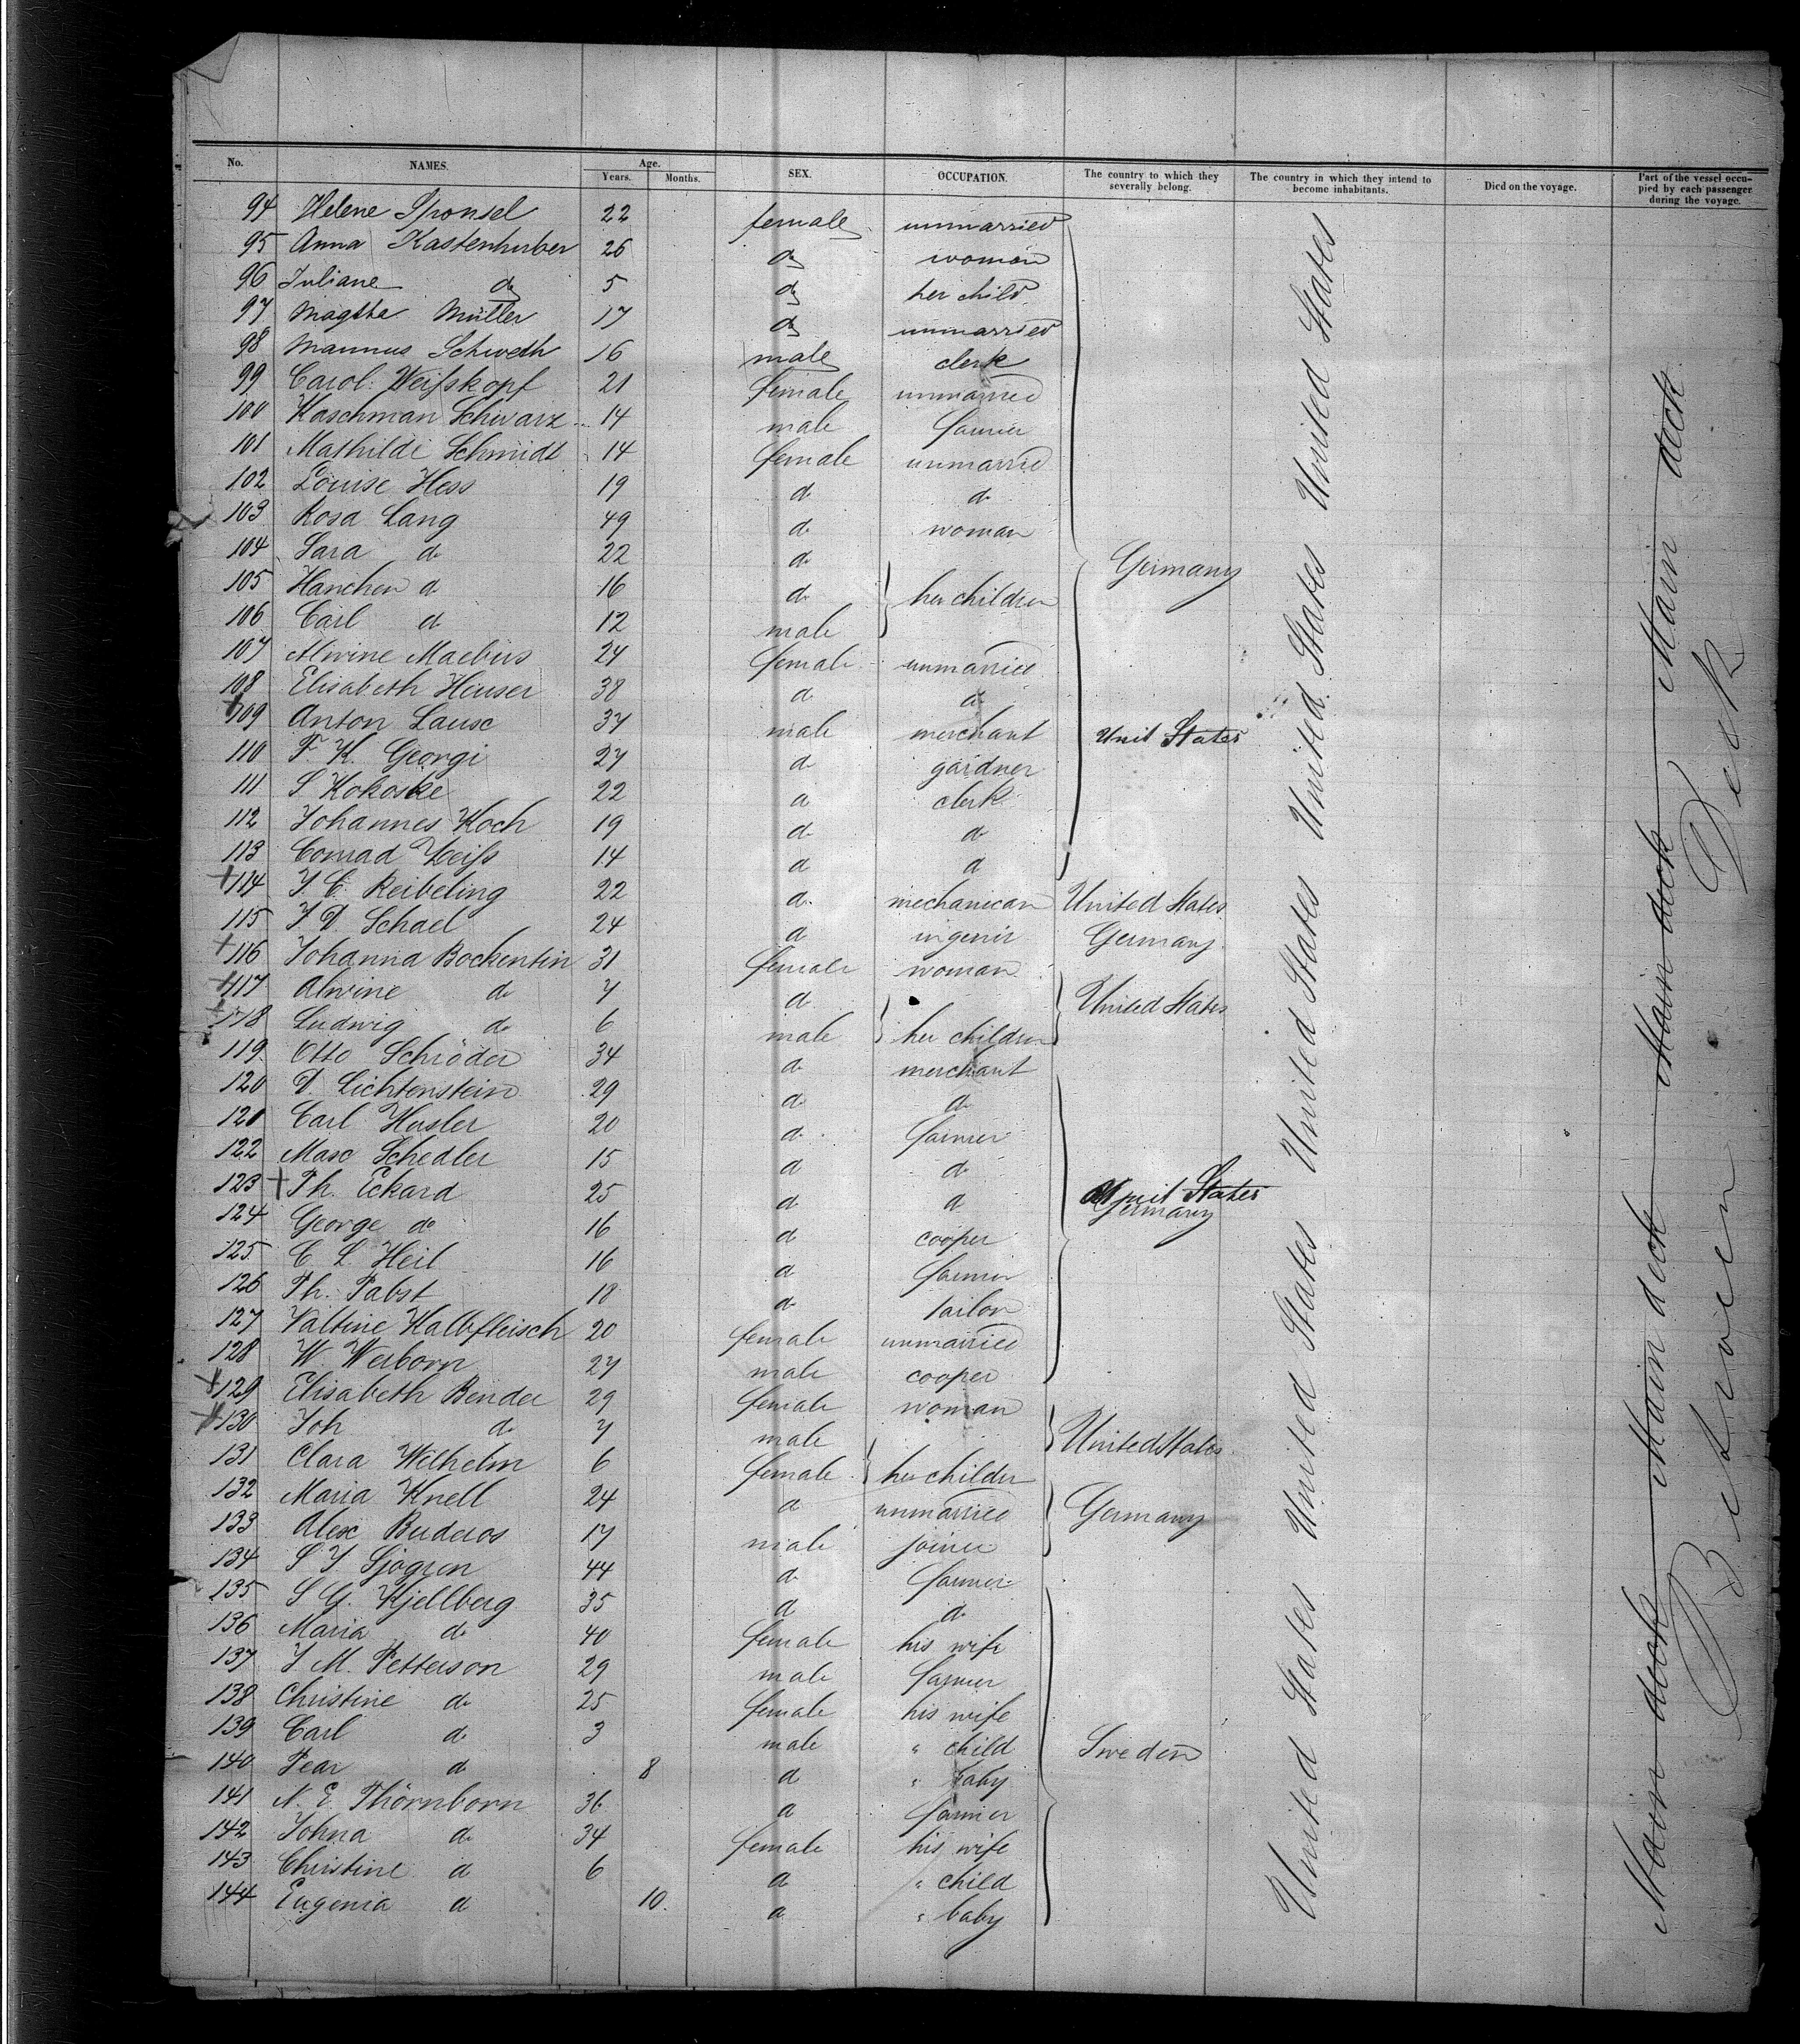 No. NAMES. Age. Years. Months. SEX. OCCUPATION. The country to which they severally belong. The country in which they intend to become inhabitants. Died on the voyage. Part of the vessel occupied by each passenger during the voyage.
94 Helene Sponsel 22 female unmarried
95 Anna Kastenhuber 26 do woman
96 Juliane do 5 do her child
97 Magtha Müller 17 do unmarried
98 Mannus Schweth 16 male clerk
99 Carol. Weifskopf 21 female unmarried
100 Kaschman Schwarz 14 male farmer
101 Mathilde Schmidt 14 female unmarried
102 Louise Hess 19 d d
103 Rosa Lang 49 d woman
104 Sara d 22 d
105 Hanchen d 16 d her children Germany
106 Carl d 12 male
107 Alwine Maebius 24 female unmarried
108 Elisabeth Heuser 38 d d
109 Anton Lause 37 male merchant Unit States
110 F. K. Georgi 27 d gardner
111 S Kokoske 22 d clerk
112 Johannes Koch 19 d d
113 Conrad Zeifs 14 d d
114 J. C. Reibeling 22 d mechanican United States
115 J D Schael 24 d ingenir Germany
116 Johanna Bockentin 31 female woman
117 Alwine d 7 d United States
118 Ludwig d 6 male her children
119 Otto Schröder 34 d merchant
120 D. Lichtenstein 29 d d
121 Carl Husler 20 d farmer
122 Max Schedler 15 d d
123 Th. Eckard 25 d d Unit States
124 George do 16 d cooper Germany
125 C L Heil 16 d farmer
126 Th. Pabst 18 d tailor
127 Valtine Halbfleisch 20 female unmarried
128 W. Werborn 27 male cooper
129 Elisabeth Bender 29 female woman
130 Joh d 7 male United States
131 Clara Wilhelm 6 female her childer
132 Maria Knell 24 d unmarried Germany
133 Alex Buderos 17 male joiner
134 S J Sjogren 44 d farmer
135 S G. Kjellberg 35 d d
136 Maria d 40 female his wife
137 J M. Petterson 29 male farmer
138 Christine d 25 female his wife
139 Carl d 3 male " child Sweden
140 Pear d 8 d " baby
141 N. E. Thörnborn 36 d farmer
142 Johna d 34 female his wife
143 Christine d 6 d " child
144 Eugenia d 10. d " baby
United States United States United States United States United States United States
Main deck Main deck Main deck Main deck
Between Deck